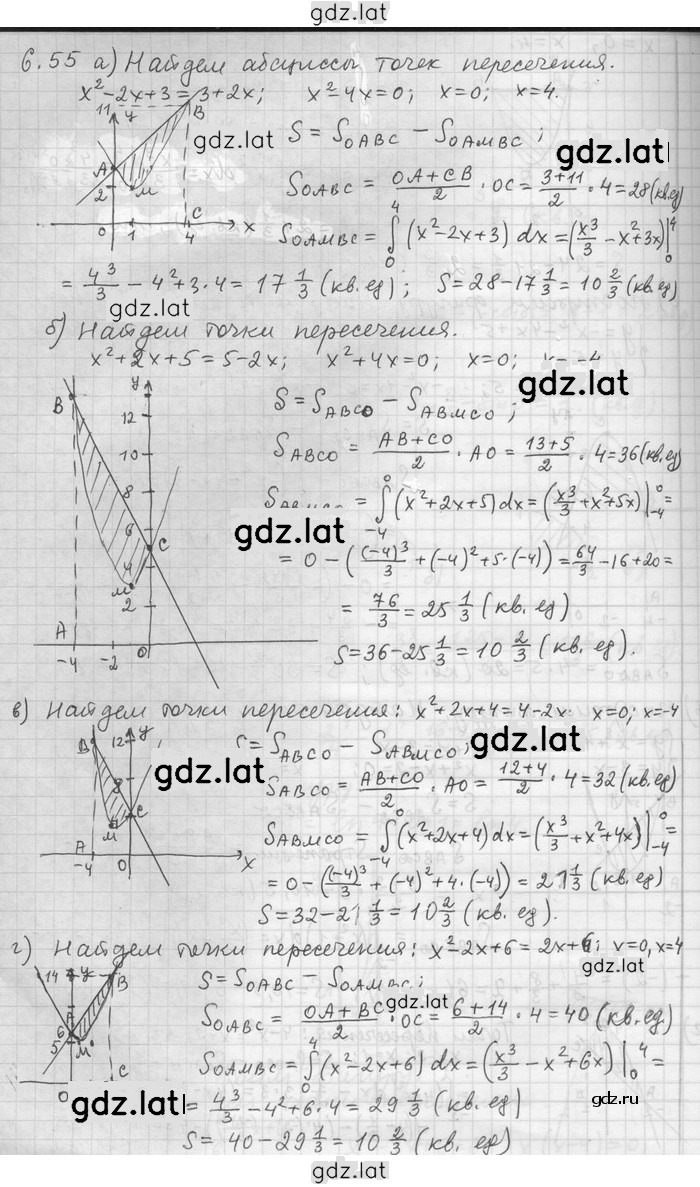 gdz.lat
6.55 а) Найдем абсциссы точек пересечения.
x²-2x+3=3+2x; x²-4x=0; x=0; x=4.
11 y B
gdz.lat
S = S_OABC - S_OAMBC ;
A M 2
S_OABC = (OA+CB)/2 · OC = (3+11)/2 · 4 = 28 (кв.ед)
0 1 4 C x
S_OAMBC = ∫₀⁴ (x²-2x+3) dx = (x³/3 - x²+3x)|₀⁴
= 4³/3 - 4²+3·4 = 17 1/3 (кв.ед); S=28-17 1/3 = 10 2/3 (кв.ед)
gdz.lat
б) Найдем точки пересечения.
x²+2x+5=5-2x; x²+4x=0; x=0;
gdz.lat
B y 12 10 8 6 4 2 C M A -4 -2 0
S = S_ABCO - S_ABMCO ;
S_ABCO = (AB+CO)/2 · AO = (13+5)/2 · 4 = 36 (кв.ед)
= ∫₋₄⁰ (x²+2x+5) dx = (x³/3 + x²+5x)|₋₄⁰ =
gdz.lat
= 0 - ((-4)³/3 + (-4)² + 5·(-4)) = 64/3 - 16 + 20 =
= 76/3 = 25 1/3 (кв. ед)
S=36-25 1/3 = 10 2/3 (кв. ед).
в) Найдем точки пересечения: x²+2x+4=4-2x x=0; x=-4
B 12 y 8 C M A -4 0 x
= S_ABCO - S_ABMCO ;
gdz.lat
gdz.lat
S_ABCO = (AB+CO)/2 · AO = (12+4)/2 · 4 = 32 (кв. ед)
S_ABMCO = ∫₋₄⁰ (x²+2x+4) dx = (x³/3 + x²+4x)|₋₄⁰ =
= 0 - ((-4)³/3 + (-4)² + 4·(-4)) = 21 1/3 (кв. ед)
S=32-21 1/3 = 10 2/3 (кв. ед).
г) Найдем точки пересечения: x²-2x+6=2x+6; x=0, x=4
gdz.lat
14 y B A 6 5 M C 0
S = S_OABC - S_OAMBC ;
gdz.lat
S_OABC = (OA+BC)/2 · OC = (6+14)/2 · 4 = 40 (кв. ед)
S_OAMBC = ∫₀⁴ (x²-2x+6) dx = (x³/3 - x²+6x)|₀⁴ =
gdz.lat
= 4³/3 - 4²+6·4 = 29 1/3 (кв. ед)
gdz.ru
S = 40-29 1/3 = 10 2/3 (кв. ед)
gdz.lat